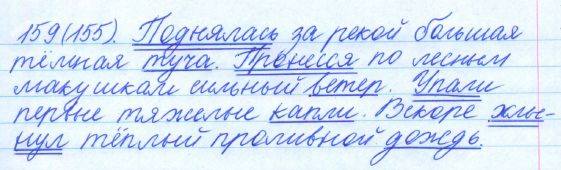 159(155). Поднялась за рекой большая
тёмная туча. Пронёсся по лесным
макушкам сильный ветер. Упали
первые тяжелые капли. Вскоре хлы-
нул тёплый проливной дождь.